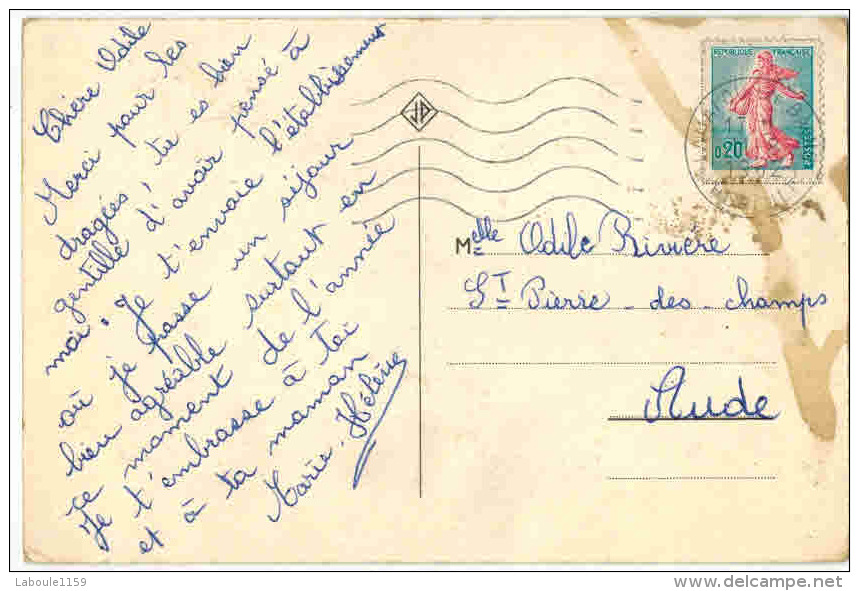 Chère Odile
Merci pour les
dragées, tu es bien
gentille d'avoir pensé à
moi. Je t'envoie l'établissement
où je passe un séjour
bien agréable surtout en
ce moment de l'année
Je t'embrasse à toi
et à ta maman
Marie-Hélène
REPUBLIQUE FRANÇAISE
0,20
JP
Melle Odile Rivière
ST Pierre-des-champs
Aude
Laboule1159
delcampe.net